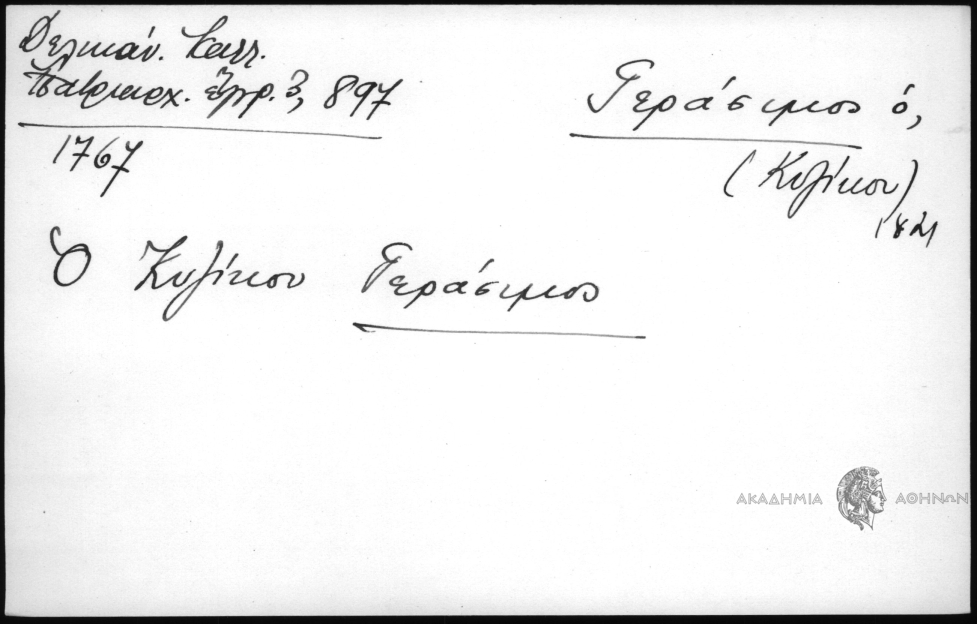 Δελικάν. Καλλ.
Πατριαρχ. ἔγγρ. 3, 897
1767
Γεράσιμος ὁ,
(Κυζίκου)
1821
Ὁ Κυζίκου Γεράσιμος
ΑΚΑΔΗΜΙΑ ΑΘΗΝΩΝ